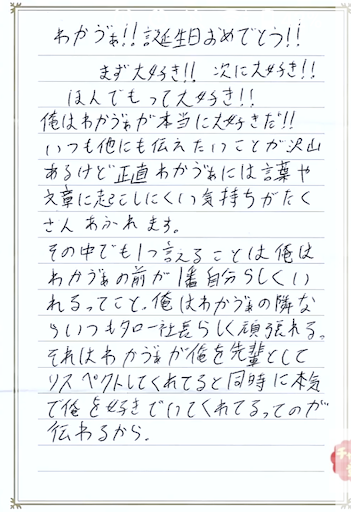 わかゔぁ!!誕生日おめでとう!!
まず大好き!! 次に大好き!!
ほんでもって大好き!!
俺はわかゔぁが本当に大好きだ!!
いつも他にも伝えたいことが沢山
あるけど正直わかゔぁには言葉や
文章に起こしにくい気持ちがたく
さんあふれます。
その中でも1つ言えることは俺は
わかゔぁの前が1番自分らしくい
れるってこと。俺はわかゔぁの隣な
らいつもタロー社長らしく頑張れる。
それはわかゔぁが俺を先輩として
リスペクトしてくれてると同時に本気
で俺を好きでいてくれてるってのが
伝わるから。